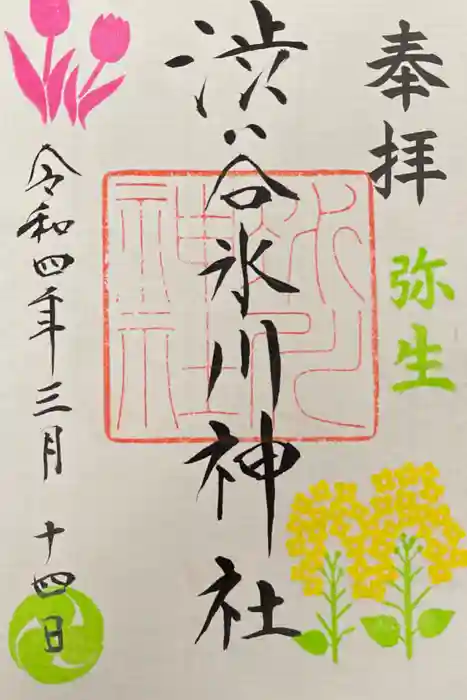 奉拝
弥生
渋谷氷川神社
令和四年三月十四日